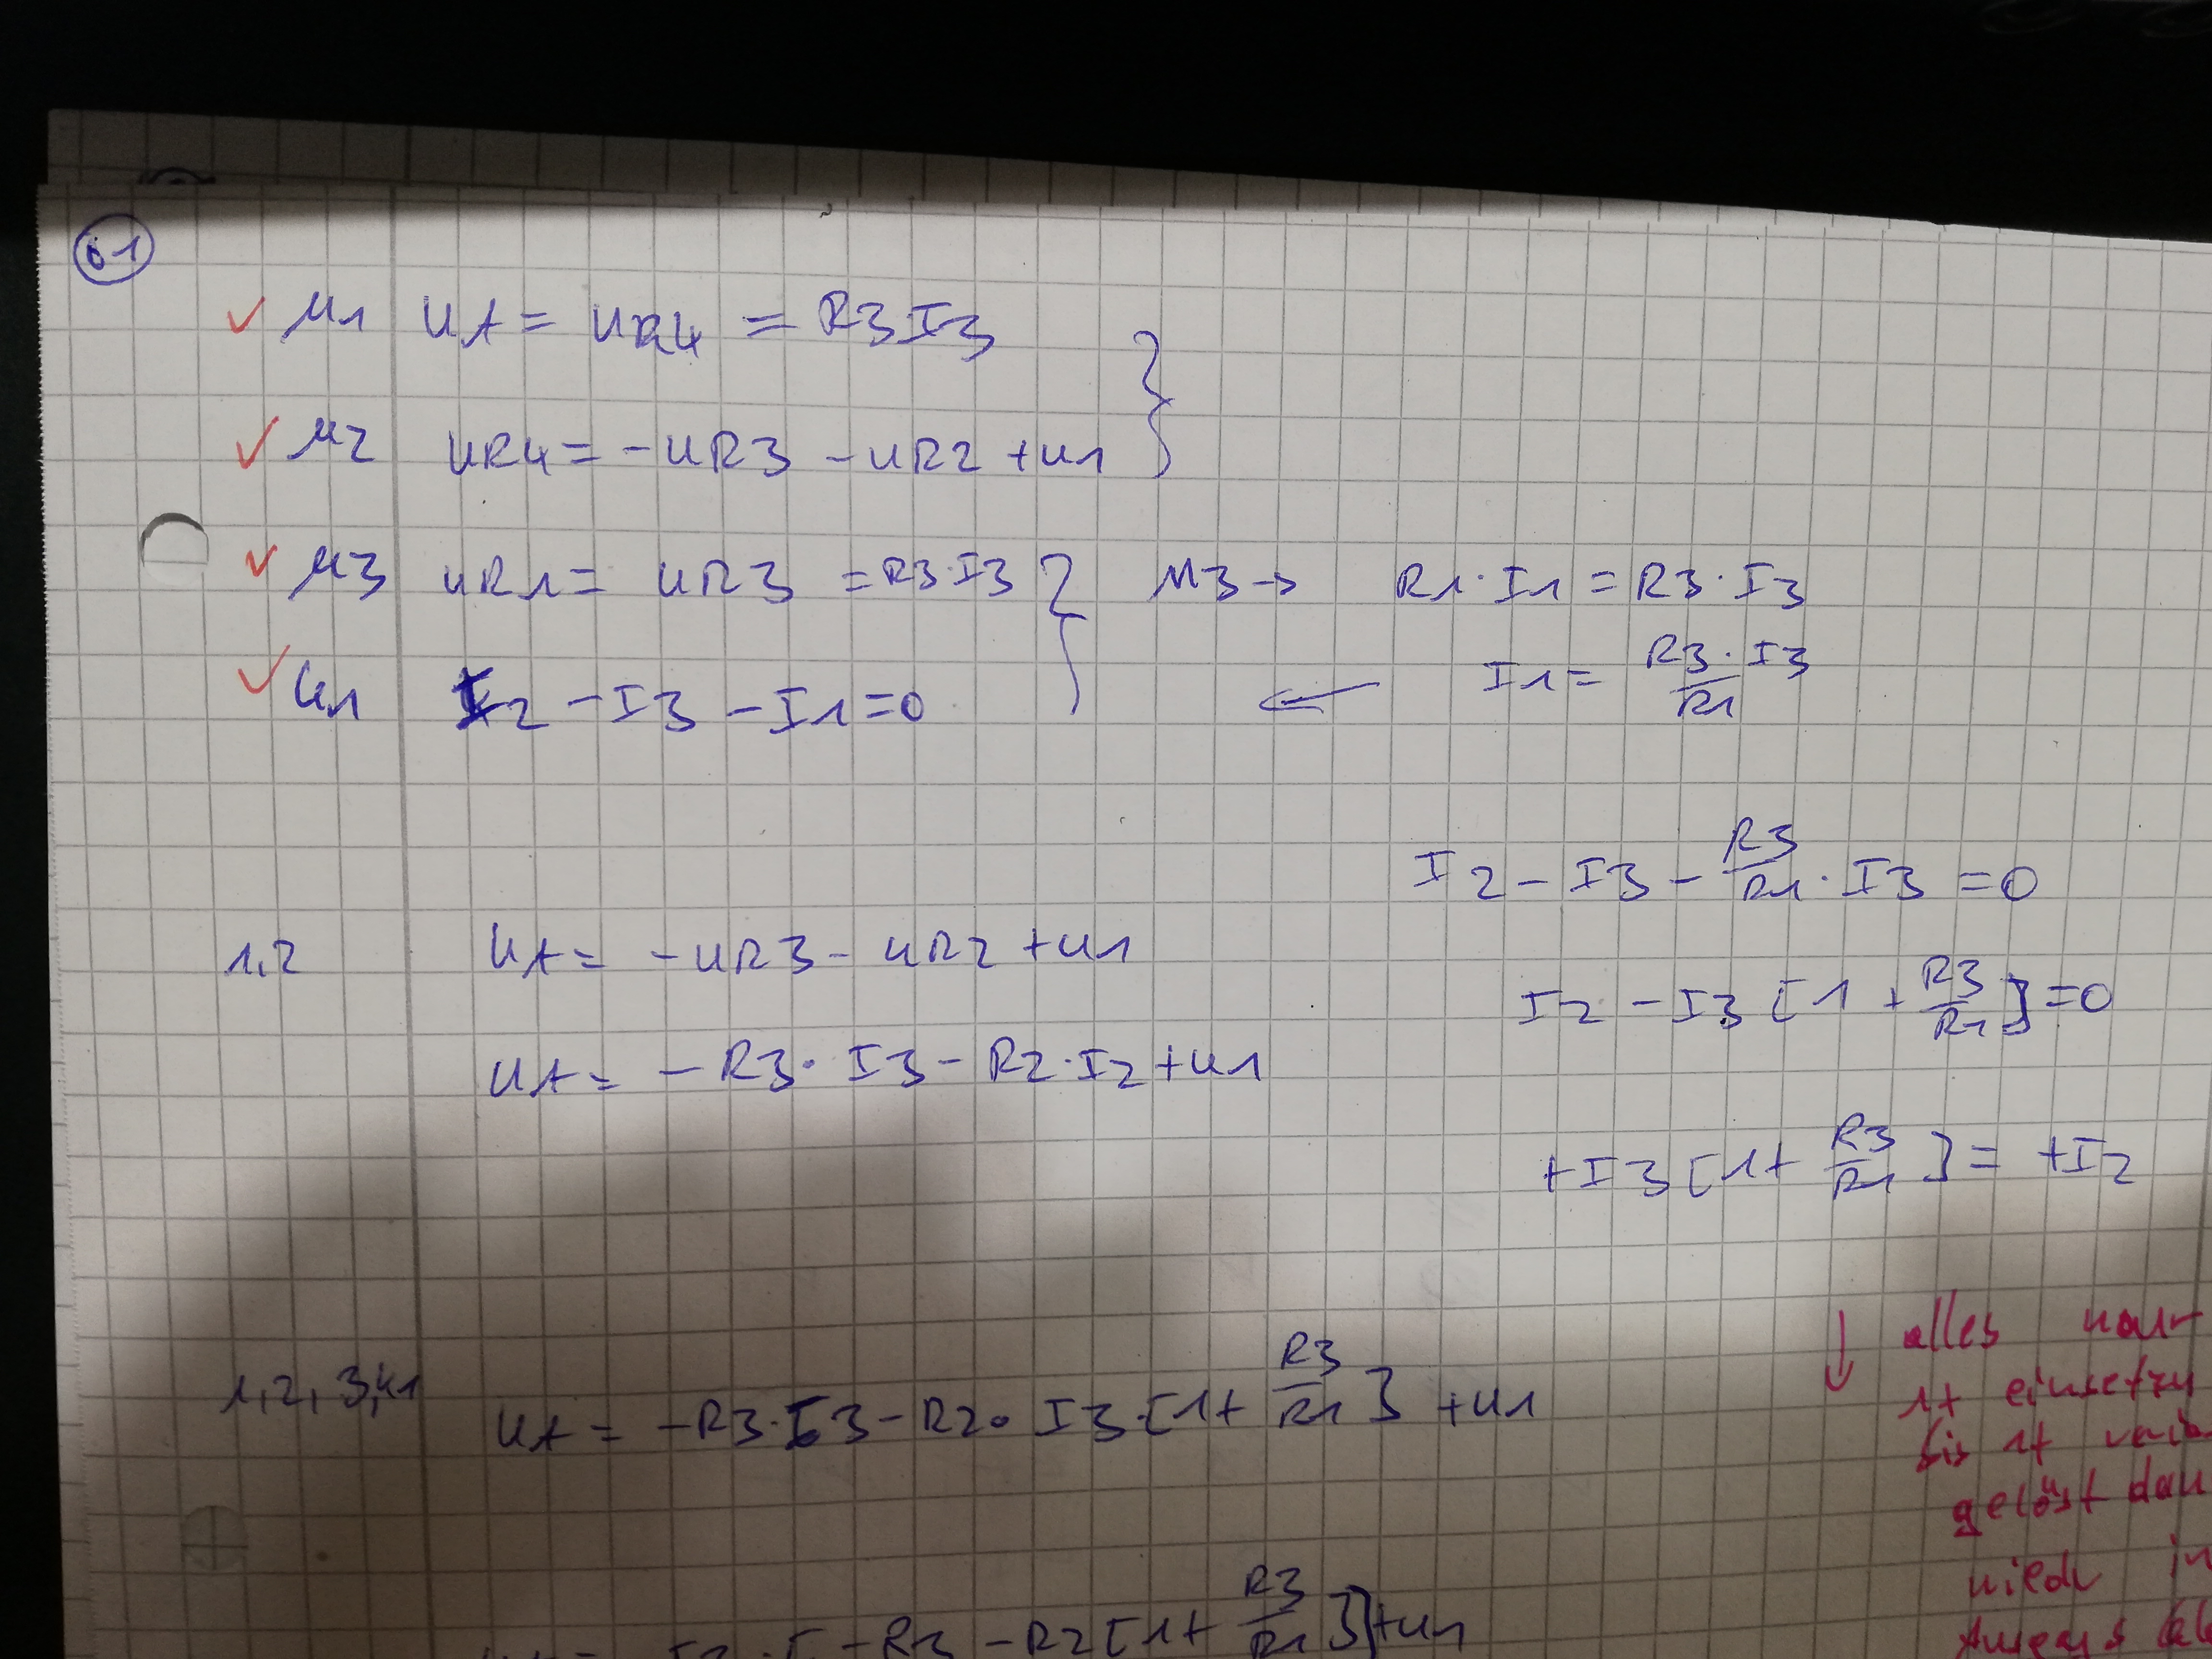 61
✓ M1 UA = UR4 = R3I3
✓ M2 UR4 = -UR3 - UR2 + U1
✓ M3 UR1 = UR3 = R3·I3 M3 → R1·I1 = R3·I3
✓ K1 I2 - I3 - I1 = 0 ← I1 = R3·I3/R1
I2 - I3 - R3/R1 · I3 = 0
1,2 UA = -UR3 - UR2 + U1
I2 - I3 [1 + R3/R1] = 0
UA = -R3·I3 - R2·I2 + U1
+I3 [1 + R3/R1] = +I2
1,2,3,K1 UA = -R3·I3 - R2·I3·[1 + R3/R1] + U1
↓ alles
1+ einsetzen
bis 1+
gelöst dan
wiedr in
-R3 - R2[1 + R3/R1]] + U1